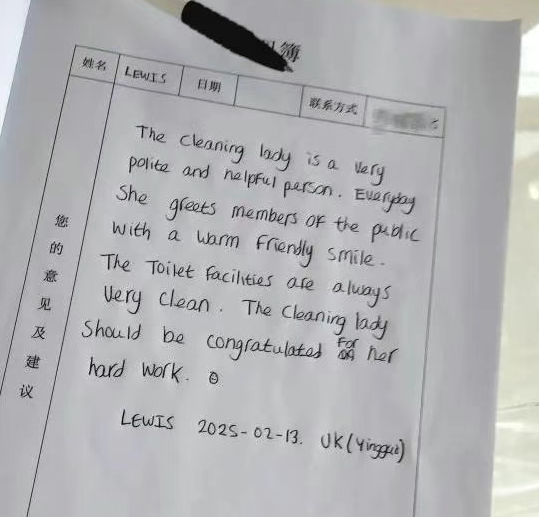 簿
姓名 LEWIS 日期 联系方式
您的意见及建议
The Cleaning lady is a very
polite and helpful person. Everyday
She greets members of the public
with a warm friendly smile.
The Toilet facilities are always
Very clean. The Cleaning lady
Should be congratulated For her
hard work.
LEWIS 2025-02-13. UK (Yingguo)